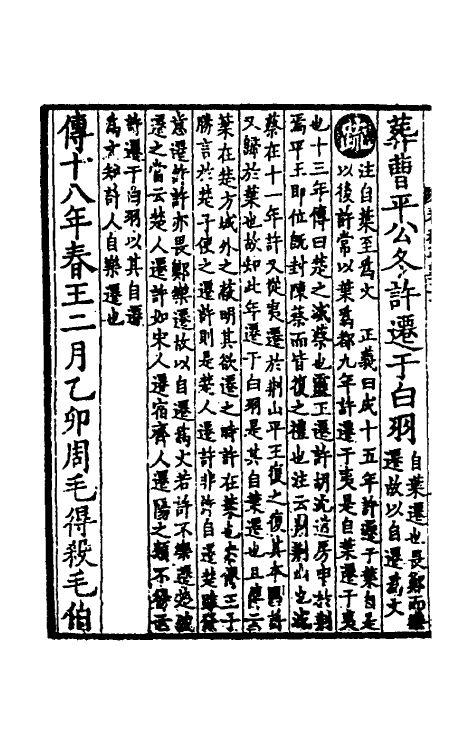 葬曹平公冬許遷于白羽
自葉遷也畏鄭而樂
遷故以自遷為文
疏
注自葉至為文　正義曰成十五年許遷于葉自是
以後許常以葉為都九年許遷于夷是自葉遷于夷
也十三年傳曰楚之滅蔡也靈王遷許胡沈道房申於荆
焉平王即位既封陳蔡而皆復之禮也注云荆荆山也滅
蔡在十一年許又從夷遷於荆山平王復之復其本國許
又歸於葉也故知此年遷于白羽是其自葉遷也且傳云
葉在楚方城外之蔽明其欲遷之時許在葉也案傳王子
勝言於楚子使之遷許則是楚人遷許非許自遷楚雖發
意遷許許亦畏鄭樂遷故以自遷為文若許不樂遷楚彊
遷之當云楚人遷許如宋人遷宿齊人遷陽之類不得云
許遷于白羽以其自遷
為文知許人自樂遷也
傳十八年春王二月乙卯周毛得殺毛伯